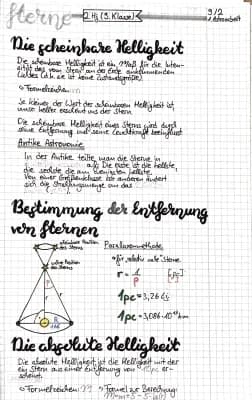 Sterne
2. Hj (9. Klasse)
9/2
Astronomie
Die scheinbare Helligkeit
Die scheinbare Helligkeit ist ein Maß für die Inten-
sität des vom Stern auf der Erde ankommenden
Lichtes (d.h. sie ist keine Zustandsgröße)
Formelzeichen:
Je kleiner der Wert der scheinbaren Helligkeit ist,
umso heller erscheint uns der Stern.
Die scheinbare Helligkeit eines Sterns wird durch
seine Entfernung und seine Leuchtkraft beeinflusst
Antike Astronomie
In der Antike teilte man die Sterne in
auf. Die erste ist die hellste,
die sechste die am wenigsten hellste.
Von einer Größenklasse zur anderen ändert
sich die Strahlungsmenge um das
Bestimmung der Entfernung
von Sternen
scheinbare Position
des Sterns
wahre Position
des Sterns
Parallaxenmethode
für relativ nahe Sterne
r = 1/p [pc]
p
r
1pc = 3,26 Lj
1pc = 3,086·10¹³ km
Die absolute Helligkeit
Die absolute Helligkeit ist die Helligkeit mit der
ein Stern aus einer Entfernung von 10pc er-
scheint.
Formelzeichen: M
Formel zur Berechnung: